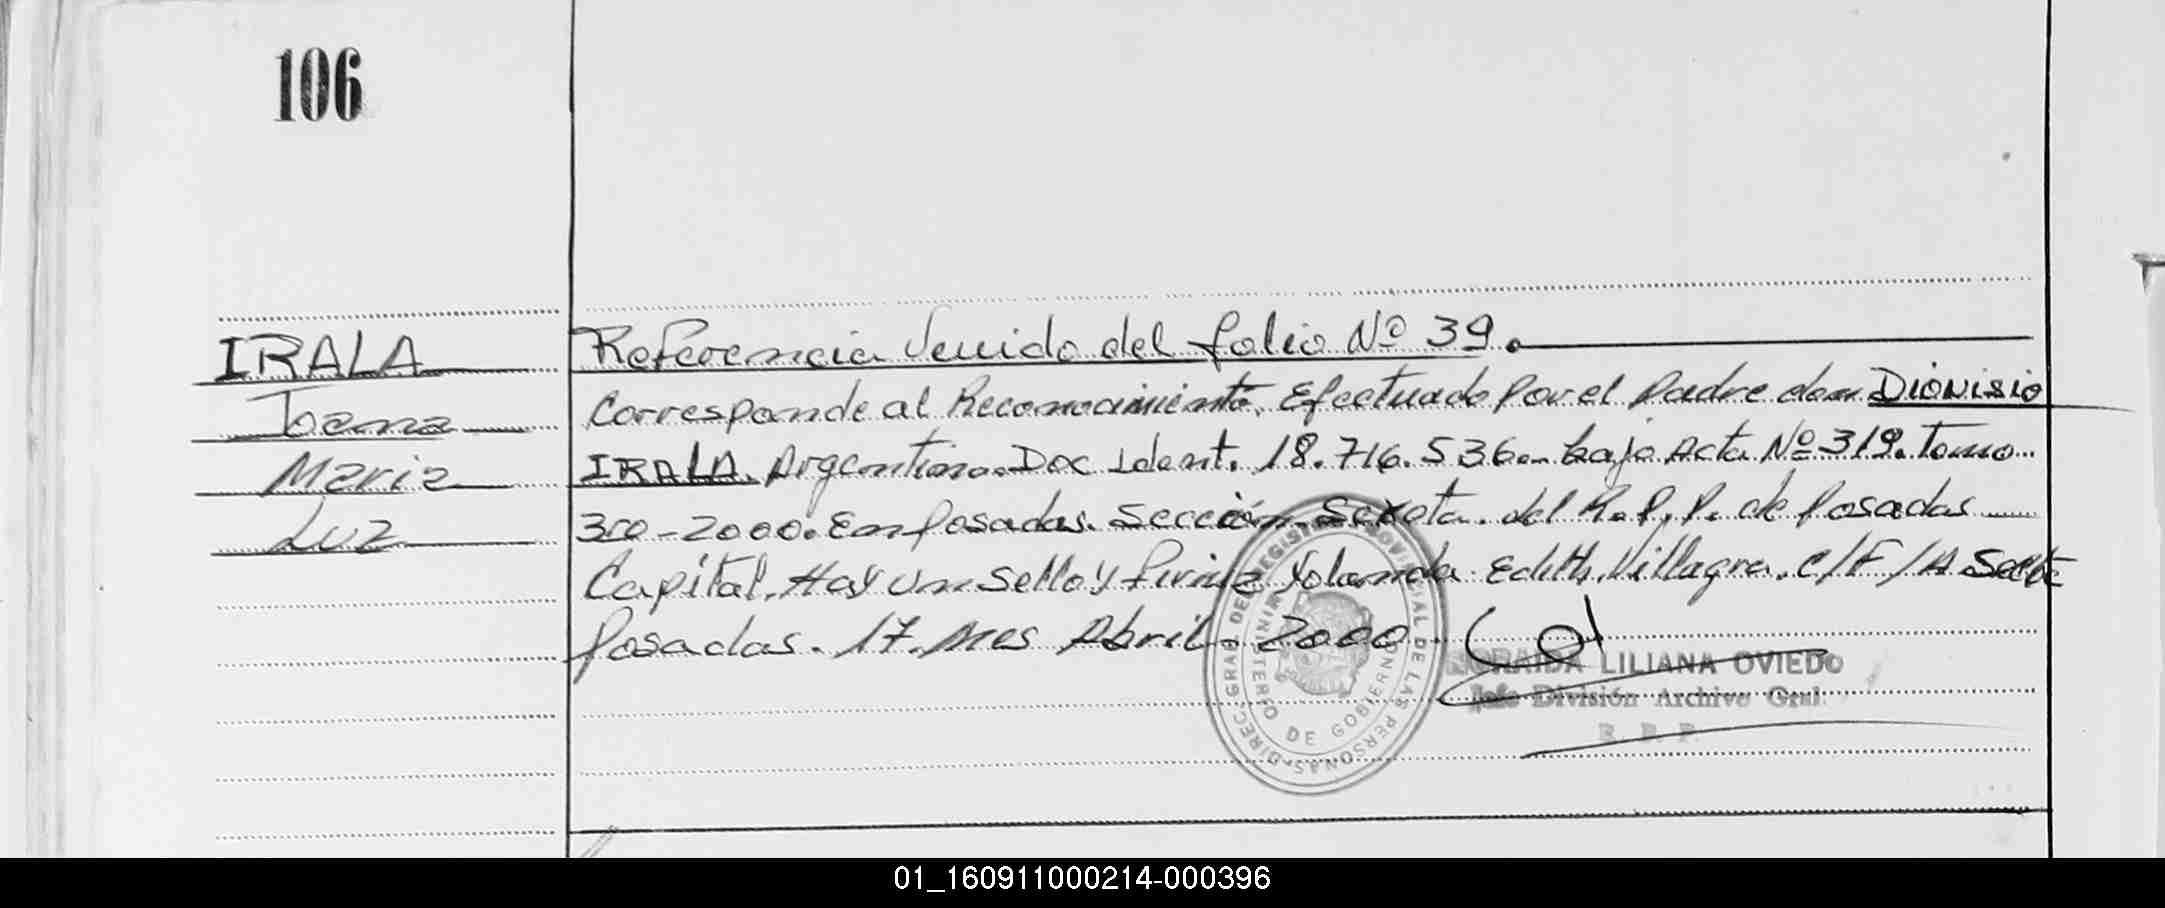 106
IRALA
Joana
Maria
Luz
Referencia Venido del folio Nº 39.
Corresponde al Reconocimiento, Efectuado Por el Padre don DIONISIO
IRALA. Argentino. Doc Ident. 18.716.536. bajo Acta Nº 319. Tomo
3ro - 2000. En Posadas. Sección Sexta. del R.P.P. de Posadas
Capital. Hay un sello y firma Yolanda Edith Villagra. C/F/A Secc
Posadas. 17. Mes Abril. 2000.
DIREC. GRAL DEL REGISTRO PROVINCIAL DE LAS PERSONAS
MINISTERIO DE GOBIERNO
NORAIDA LILIANA OVIEDO
Jefe División Archivo Gral.
R. P. P.
01_160911000214-000396